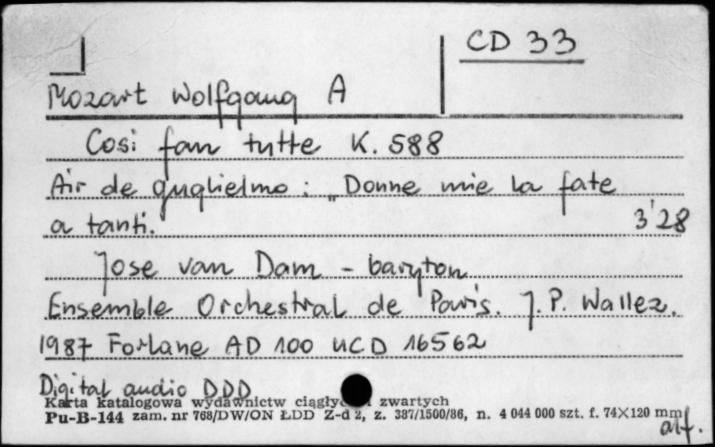 CD 33
Mozart Wolfgang A
Cosi fan tutte K. 588
Air de guglielmo : „Donne mie la fate
a tanti. 3'28
Jose van Dam - baryton
Ensemble Orchestral de Paris. J. P. Wallez.
1987 Forlane AD 100 UCD 16562
Digital audio DDD
Karta katalogowa wydawnictw zwartych
Pu-B-144 zam. nr 768/DW/ON ŁDD Z-d 2, z. 387/1500/86, n. 4 044 000 szt. f. 74×120 mm
alf.